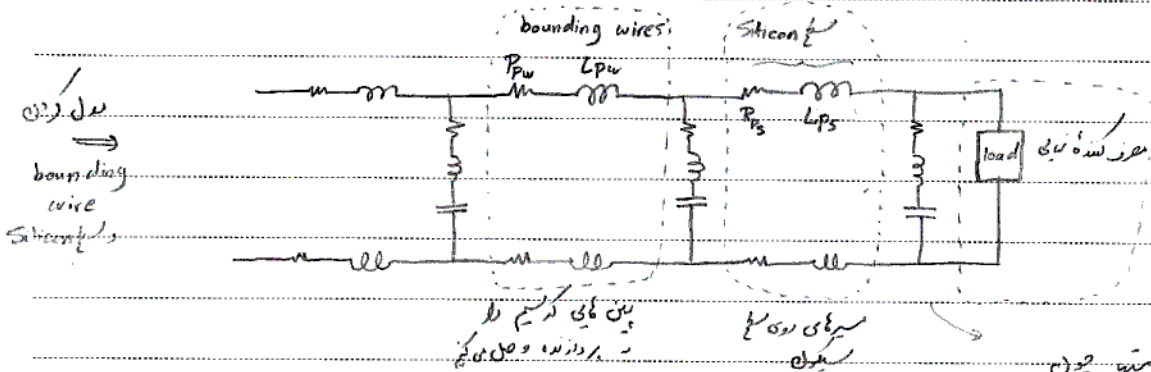 bounding wires
Silicon سطح
Rpw Lpw
Rps Lps
مدل کردن
⇒
bounding
wire
و سطح Silicon
load
مصرف کنندهٔ نهایی
پین هایی که سیم را
به پردازنده وصل می‌کند
مسیرهای روی سطح
سیلیکون